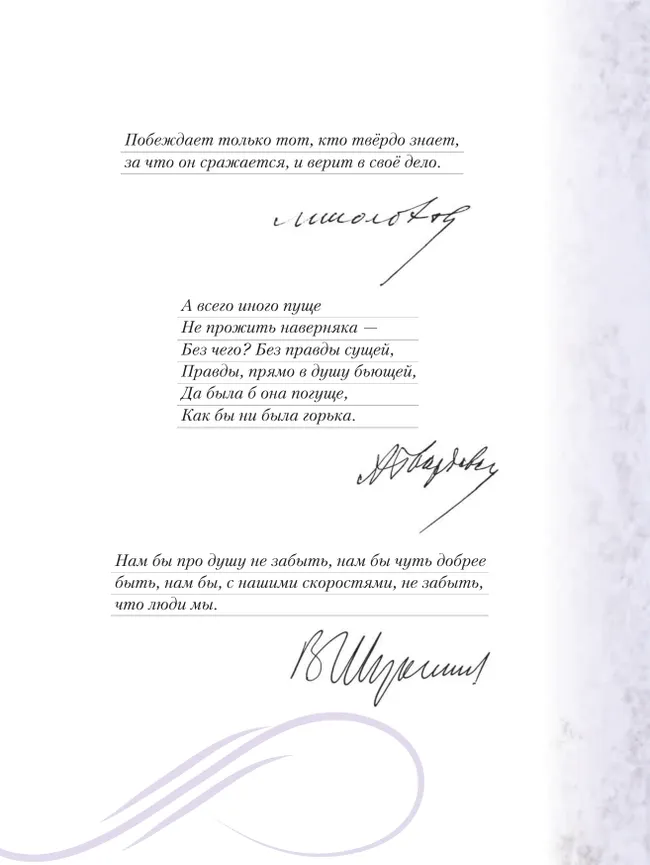 Побеждает только тот, кто твёрдо знает,
за что он сражается, и верит в своё дело.
МШолохов
А всего иного пуще
Не прожить наверняка —
Без чего? Без правды сущей,
Правды, прямо в душу бьющей,
Да была б она погуще,
Как бы ни была горька.
АТвардовский
Нам бы про душу не забыть, нам бы чуть добрее
быть, нам бы, с нашими скоростями, не забыть,
что люди мы.
ВШукшин